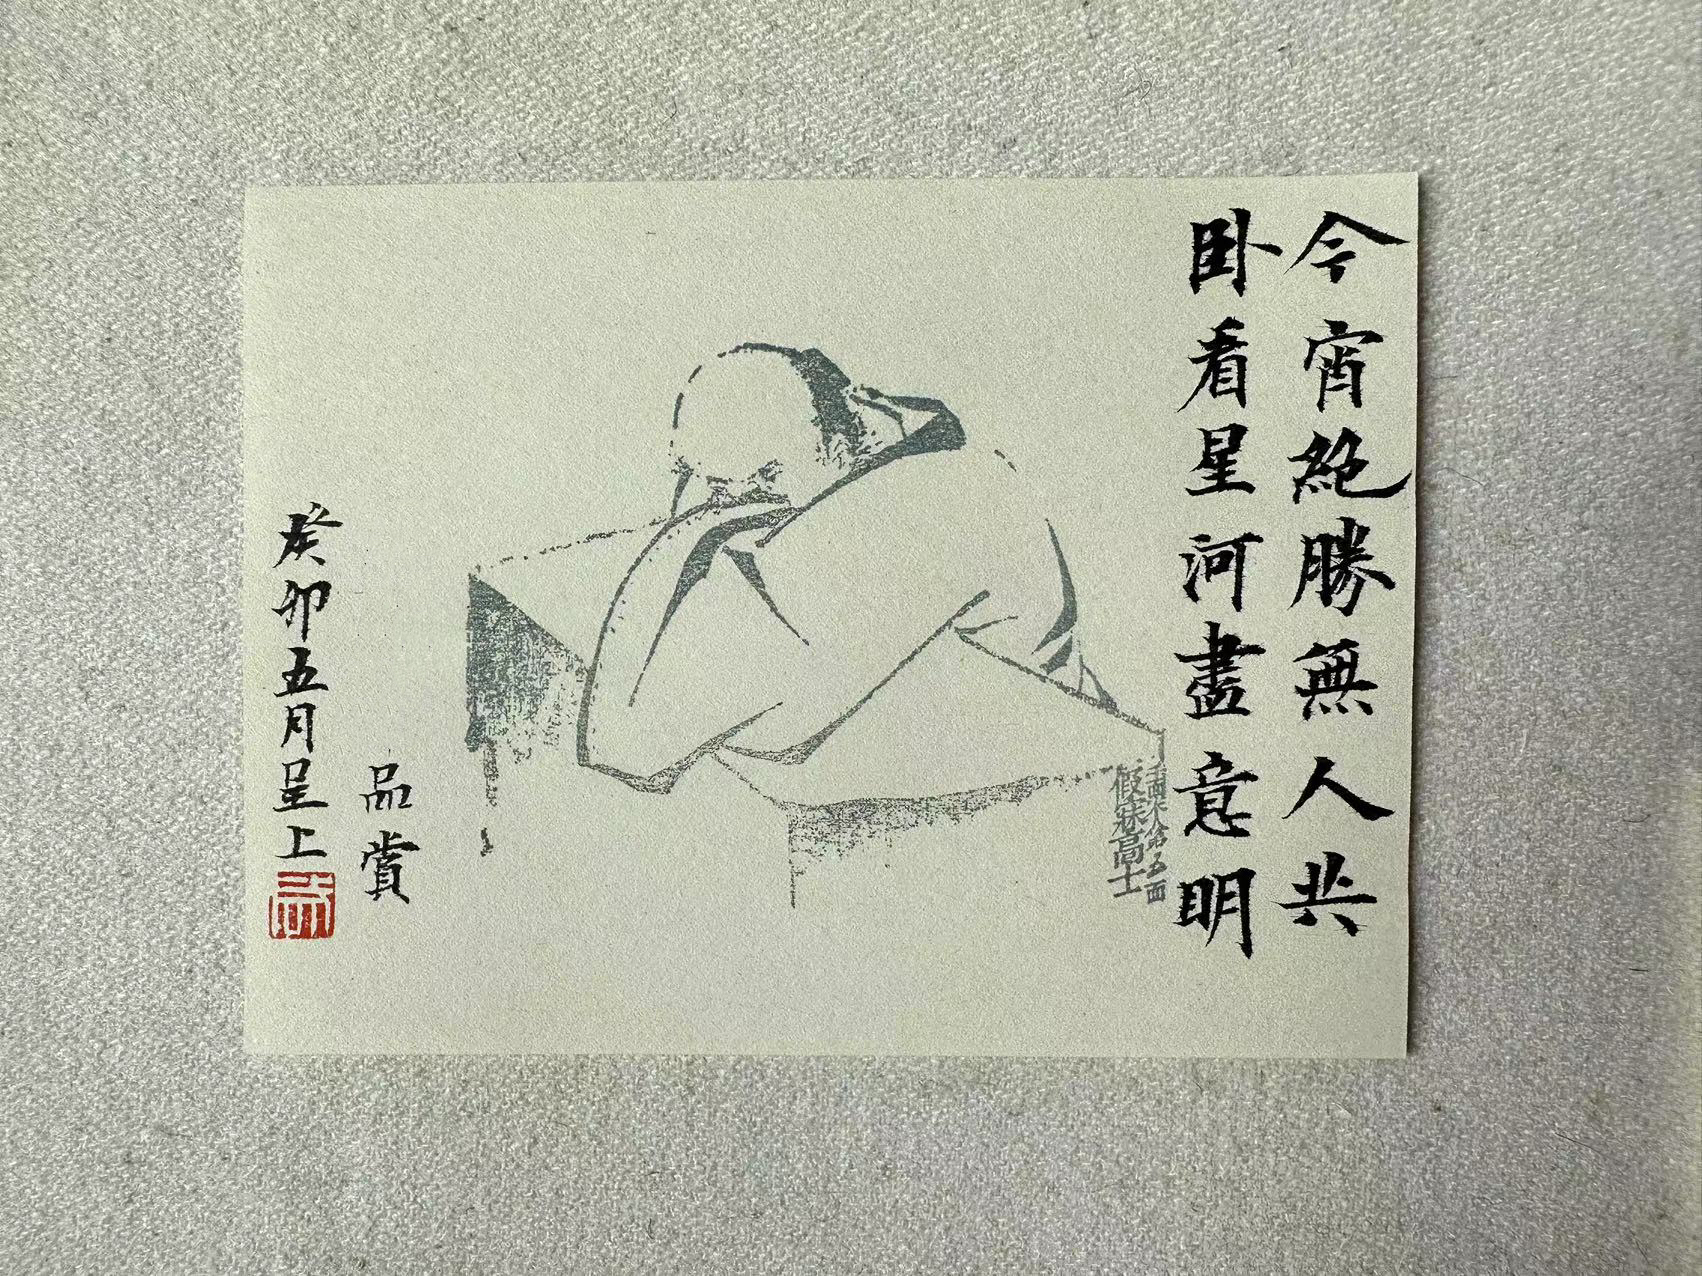 今宵絶勝無人共
卧看星河盡意明
假寐高士
品賞
癸卯五月呈上